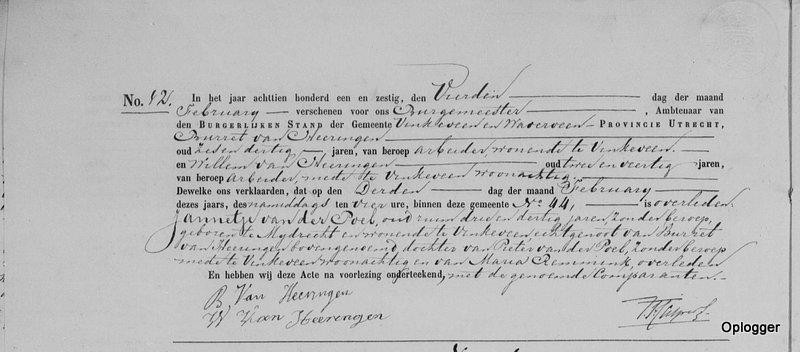 No. 12. In het jaar achttien honderd een en zestig, den Vierden dag der maand
Februarij verschenen voor ons Burgemeester, Ambtenaar van
den BURGERLIJKEN STAND der Gemeente Vinkeveen en Waverveen PROVINCIE UTRECHT,
Burret van Heeringen
oud zes en dertig, jaren, van beroep arbeider, wonende te Vinkeveen.
en Willem van Heeringen oud twee en veertig jaren,
van beroep arbeider, mede te Vinkeveen woonachtig
Dewelke ons verklaarden, dat op den Derden dag der maand Februarij
dezes jaars, des namiddags ten vier ure, binnen deze gemeente No 44, is overleden
Jannetje van der Poel, oud ruim drie en dertig jaren, zonder beroep,
geboren te Mydrecht en wonende te Vinkeveen, echtgenoot van Burret
van Heeringen bovengenoemd, dochter van Pieter van der Poel, zonder beroep
mede te Vinkeveen woonachtig en van Maria Remmink, overleden
En hebben wij deze Acte na voorlezing onderteekend, met de genoemde Comparanten.
B Van Heeringen
W Van Heerengen
Oplogger